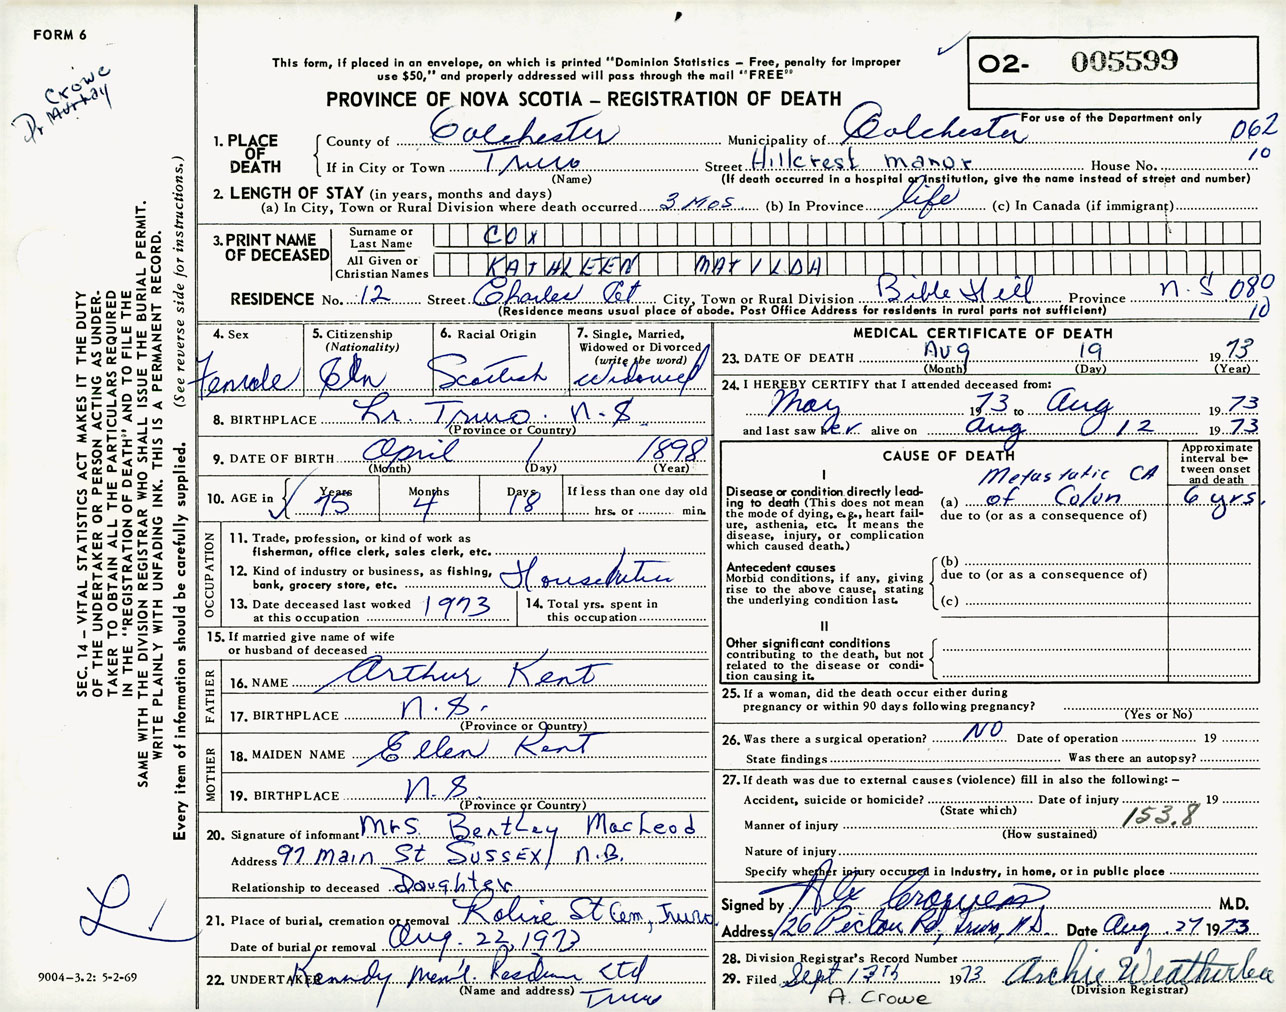 FORM 6
Dr Crowe
Murray
This form, if placed in an envelope, on which is printed "Dominion Statistics – Free, penalty for improper
use $50," and properly addressed will pass through the mail "FREE"
O2- 005599
PROVINCE OF NOVA SCOTIA – REGISTRATION OF DEATH
For use of the Department only
1. PLACE OF DEATH
County of Colchester Municipality of Colchester 062
If in City or Town Truro Street Hillcrest Manor House No. 10
(Name) (If death occurred in a hospital or institution, give the name instead of street and number)
2. LENGTH OF STAY (in years, months and days)
(a) In City, Town or Rural Division where death occurred 3 Mos (b) In Province life (c) In Canada (if immigrant)
3. PRINT NAME OF DECEASED
Surname or Last Name COX
All Given or Christian Names KATHLEEN MATILDA
RESIDENCE No. 12 Street Charles Crt City, Town or Rural Division Bible Hill Province N.S 080
(Residence means usual place of abode. Post Office Address for residents in rural parts not sufficient) 10
4. Sex
Female
5. Citizenship
(Nationality)
Cdn
6. Racial Origin
Scottish
7. Single, Married,
Widowed or Divorced
(write the word)
Widowed
8. BIRTHPLACE Lr. Truro. N.S.
(Province or Country)
9. DATE OF BIRTH April 1 1898
(Month) (Day) (Year)
10. AGE in Years Months Days If less than one day old
75 4 18 hrs. or min.
OCCUPATION
11. Trade, profession, or kind of work as
fisherman, office clerk, sales clerk, etc.
12. Kind of industry or business, as fishing,
bank, grocery store, etc.
13. Date deceased last worked
at this occupation 1973
14. Total yrs. spent in
this occupation
15. If married give name of wife
or husband of deceased
FATHER
16. NAME Arthur Kent
17. BIRTHPLACE N.S.
(Province or Country)
MOTHER
18. MAIDEN NAME Ellen Kent
19. BIRTHPLACE N.S.
(Province or Country)
20. Signature of informant Mrs. Bentley MacLeod
Address 97 Main St Sussex, N.B.
Relationship to deceased Daughter
21. Place of burial, cremation or removal Robie St Cem, Truro
Date of burial or removal Aug. 22, 1973
22. UNDERTAKER Ltd
(Name and address) Truro
MEDICAL CERTIFICATE OF DEATH
23. DATE OF DEATH Aug 19 1973
(Month) (Day) (Year)
24. I HEREBY CERTIFY that I attended deceased from:
May 1973 to Aug 1973
and last saw her alive on Aug 12 1973
CAUSE OF DEATH
Approximate
interval be-
tween onset
and death
I
Disease or condition directly lead-
ing to death (This does not mean
the mode of dying, e.g., heart fail-
ure, asthenia, etc. It means the
disease, injury, or complication
which caused death.)
Metastatic CA
(a) of Colon 6 yrs.
due to (or as a consequence of)
Antecedent causes
Morbid conditions, if any, giving
rise to the above cause, stating
the underlying condition last.
(b)
due to (or as a consequence of)
(c)
II
Other significant conditions
contributing to the death, but not
related to the disease or condi-
tion causing it.
25. If a woman, did the death occur either during
pregnancy or within 90 days following pregnancy?
(Yes or No)
26. Was there a surgical operation? NO Date of operation 19
State findings Was there an autopsy?
27. If death was due to external causes (violence) fill in also the following: –
Accident, suicide or homicide? Date of injury 19
(State which)
Manner of injury 153.8
(How sustained)
Nature of injury
Specify whether injury occurred in industry, in home, or in public place
Signed by M.D.
Address 126 Pictou Rd, Truro, N.S. Date Aug 27 1973
28. Division Registrar's Record Number
29. Filed Sept 1973 Archie Weatherbee
(Division Registrar)
A. Crowe
SEC. 14 – VITAL STATISTICS ACT MAKES IT THE DUTY
OF THE UNDERTAKER OR PERSON ACTING AS UNDER-
TAKER TO OBTAIN ALL THE PARTICULARS REQUIRED
IN THE "REGISTRATION OF DEATH" AND TO FILE THE
SAME WITH THE DIVISION REGISTRAR WHO SHALL ISSUE THE BURIAL PERMIT.
WRITE PLAINLY WITH UNFADING INK. THIS IS A PERMANENT RECORD.
Every item of information should be carefully supplied. (See reverse side for instructions.)
9004–3.2: 5-2-69